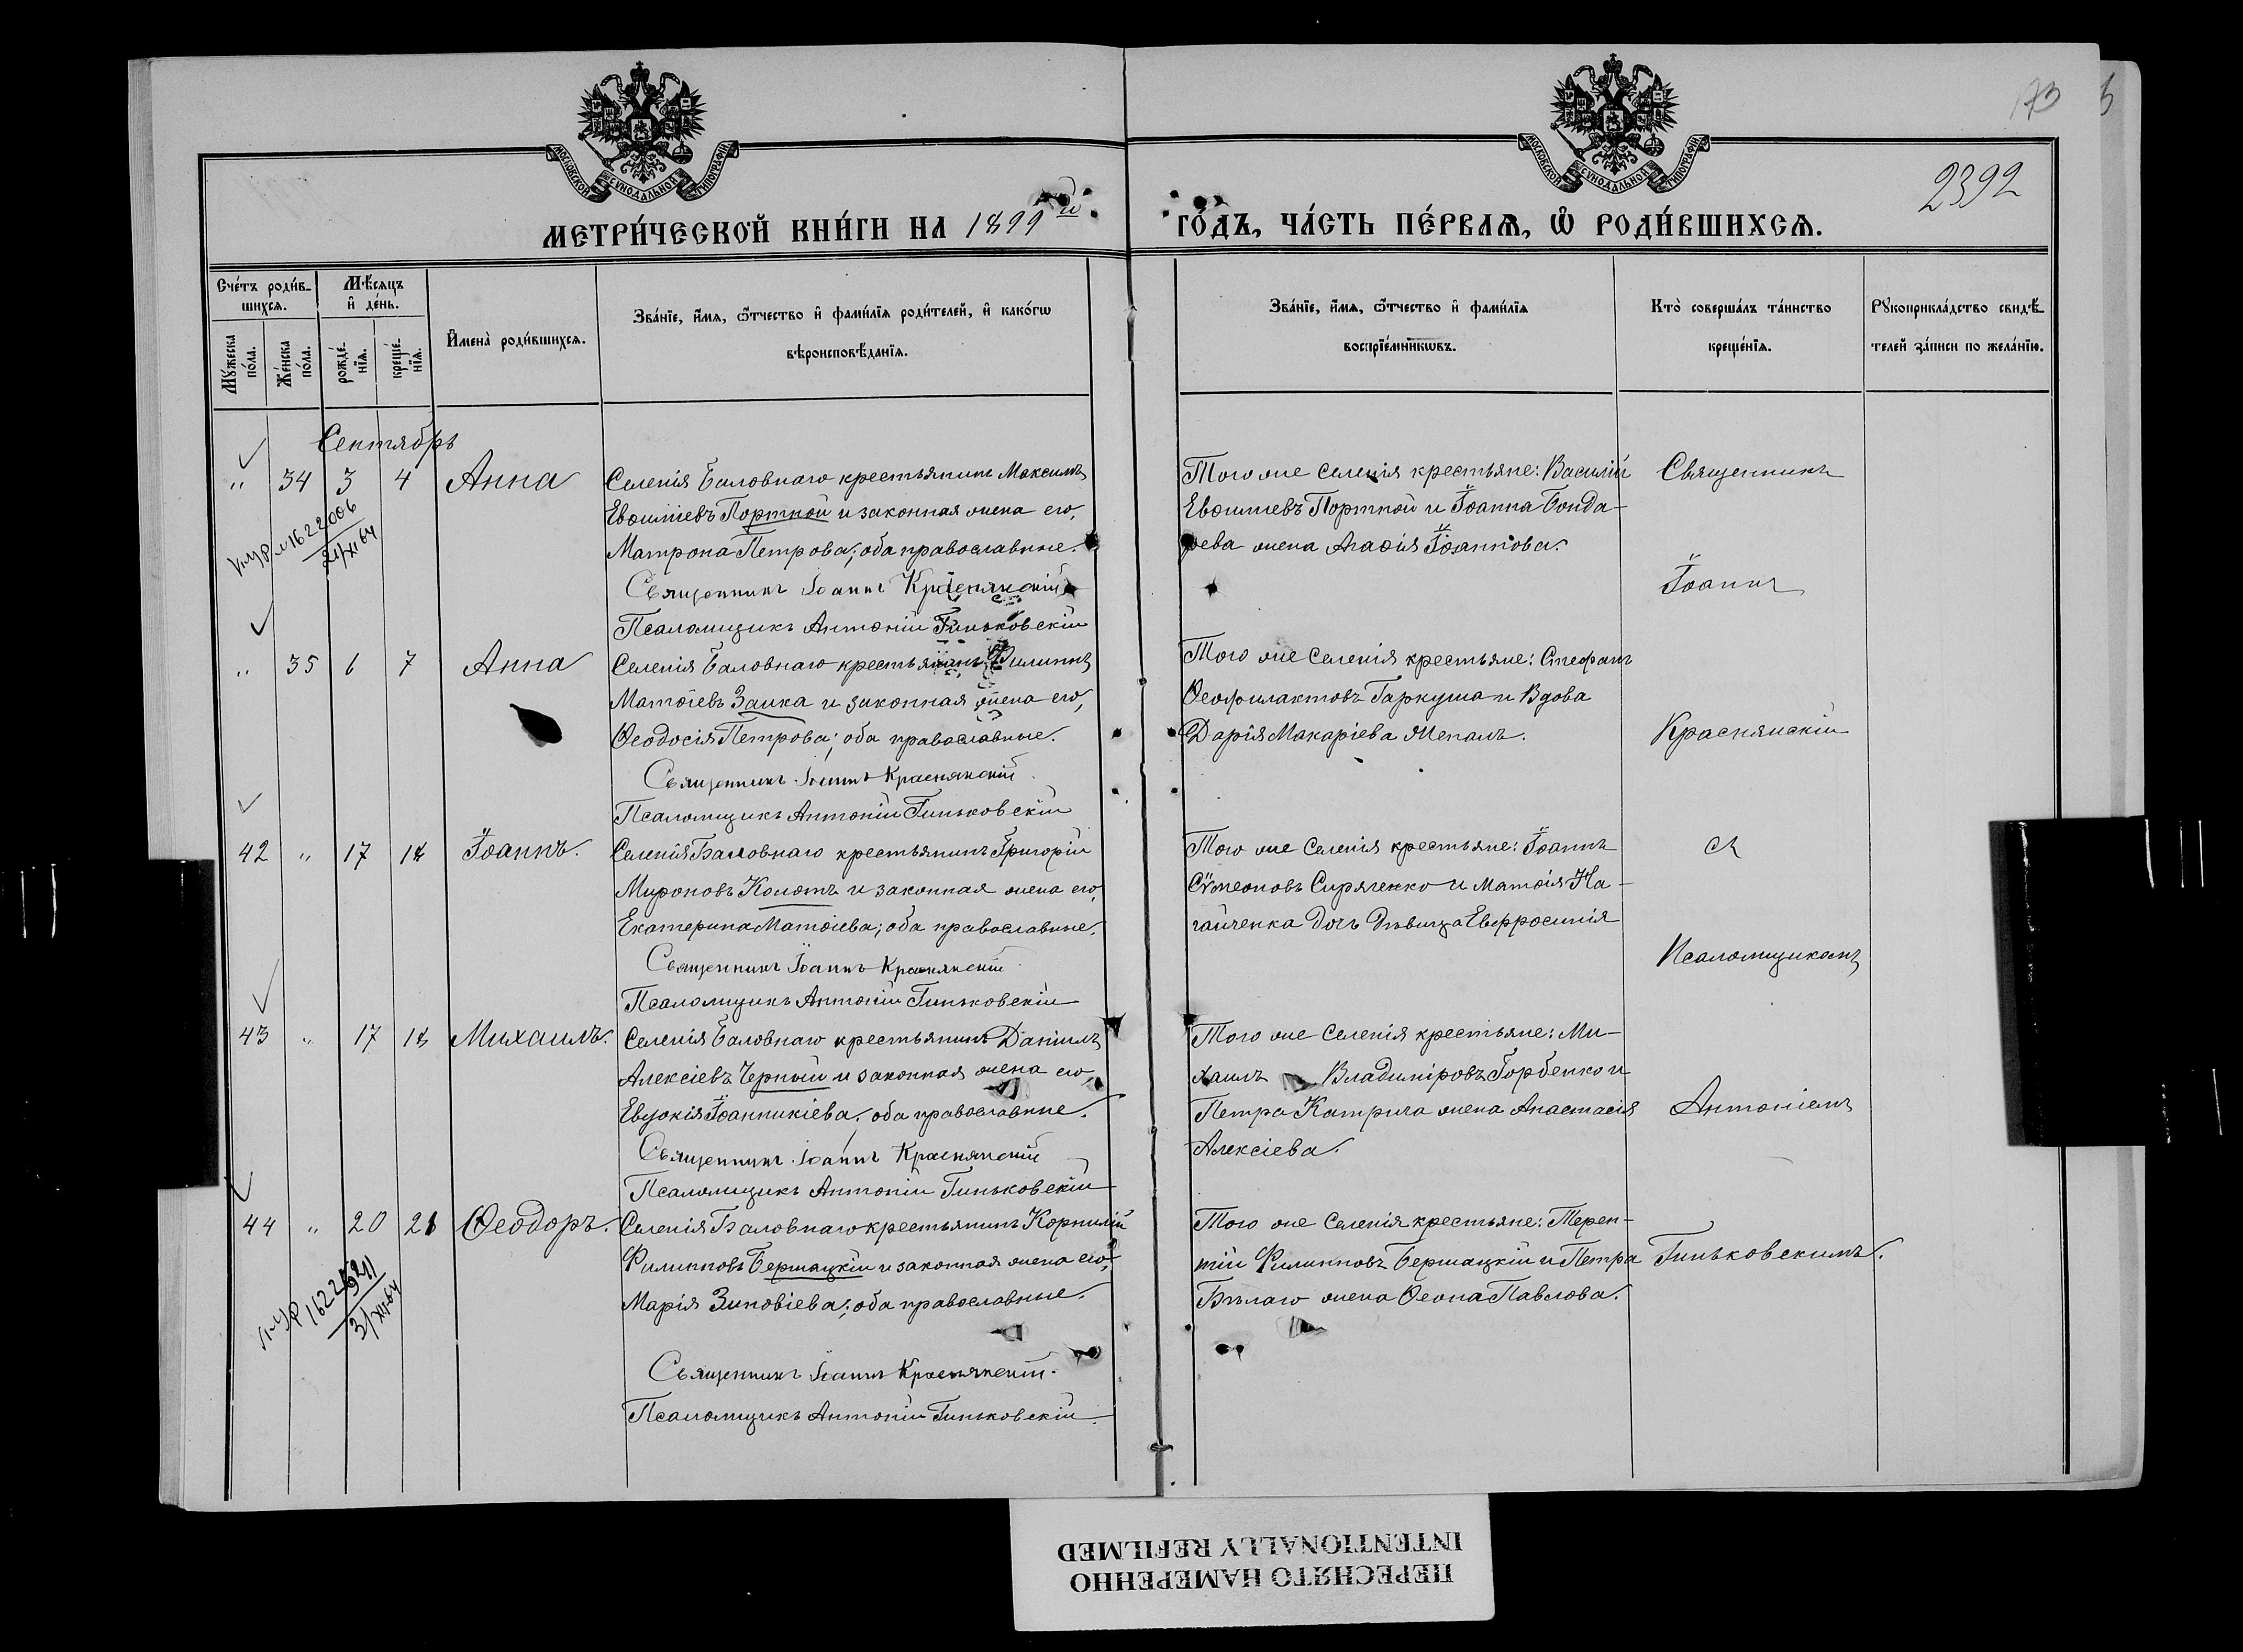 173
2392
МОСКОВСКОЙ СѴНОДАЛЬНОЙ ТИПОГРАФІИ
МОСКОВСКОЙ СѴНОДАЛЬНОЙ ТИПОГРАФІИ
МЕТРИ́ЧЕСКОЙ КНИ́ГИ НА 1899й ГО́ДЪ, ЧА́СТЬ ПЕ́РВАѦ, Ѽ РОДИ́ВШИХСѦ.
Счетъ родившихсѧ.
Мѣсѧцъ и день.
Имена родившихсѧ.
Званїе, имѧ, ѿтчество и фамилїѧ родителей, и какогѡ
вѣроисповѣданїѧ.
Званїе, имѧ, ѿтчество и фамилїѧ
воспрїемникѡвъ.
Кто совершалъ таинство
крещенїѧ.
Рꙋкоприкладство свидѣ-
телей записи по желанїю.
Мꙋжеска пола.
Женска пола.
рождѐнїѧ.
крещенїѧ.
Сентябрь
" 34 3 4 Анна
Селенія Баловнаго крестьянинъ Максимъ
Евѳиміевъ Портной и законная жена его,
Матрона Петрова; оба православные.
Священникъ Іоаннъ Краснянскій
Псаломщикъ Антоній Гиньковскій
Того же селенія крестьяне: Василій
Евѳиміевъ Портной и Іоанна Бонда-
рева жена Агаѳія Іоаннова.
1622006
21/XI 64
" 35 6 7 Анна
Селенія Баловнаго крестьянинъ Филиппъ
Матѳіевъ Заика и законная жена его,
Ѳеодосія Петрова; оба православные.
Священникъ Іоаннъ Краснянскій
Псаломщикъ Антоній Гиньковскій
Того же селенія крестьяне: Стефанъ
Ѳеофилактовъ Гаркуша и Вдова
Дарія Макаріева Мепаль.
42 " 17 18 Іоаннъ.
Селенія Баловнаго крестьянинъ Григорій
Мироновъ Коломъ и законная жена его,
Екатерина Матѳіева; оба православные.
Священникъ Іоаннъ Краснянскій
Псаломщикъ Антоній Гиньковскій
Того же селенія крестьяне: Іоаннъ
Сѵмеоновъ Сиряченко и Матѳія На-
гайченка дочь дѣвица Евфросинія
43 " 17 18 Михаилъ.
Селенія Баловнаго крестьянинъ Даніилъ
Алексіевъ Черный и законная жена его,
Евдокія Іоанникіева. оба православные.
Священникъ Іоаннъ Краснянскій
Псаломщикъ Антоній Гиньковскій
Того же селенія крестьяне: Ми-
хаилъ Владиміровъ Горбенко и
Петра Катрича жена Анастасія
Алексіева.
44 " 20 21 Ѳеодоръ.
Селенія Баловнаго крестьянинъ Корнилій
Филипповъ Бершацкій и законная жена его,
Марія Зиновіева; оба православные.
Священникъ Іоаннъ Краснянскій.
Псаломщикъ Антоній Гиньковскій.
Того же селенія крестьяне: Терен-
тій Филипповъ Бершацкій и Петра
Бѣлаго жена Ѳеона Павлова.
Священникъ
Іоаннъ
Краснянскій
съ
Псаломщикомъ
Антоніемъ
Гиньковскимъ.
ПЕРЕСНЯТО НАМЕРЕННО
INTENTIONALLY REFILMED